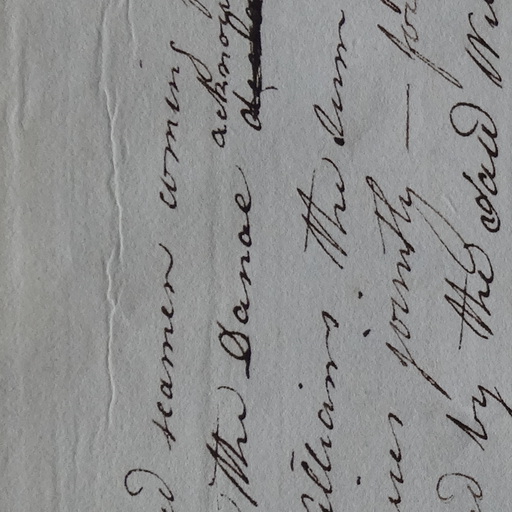 seamen coming
the Danae
illiams the sum
jointly — for
by the said